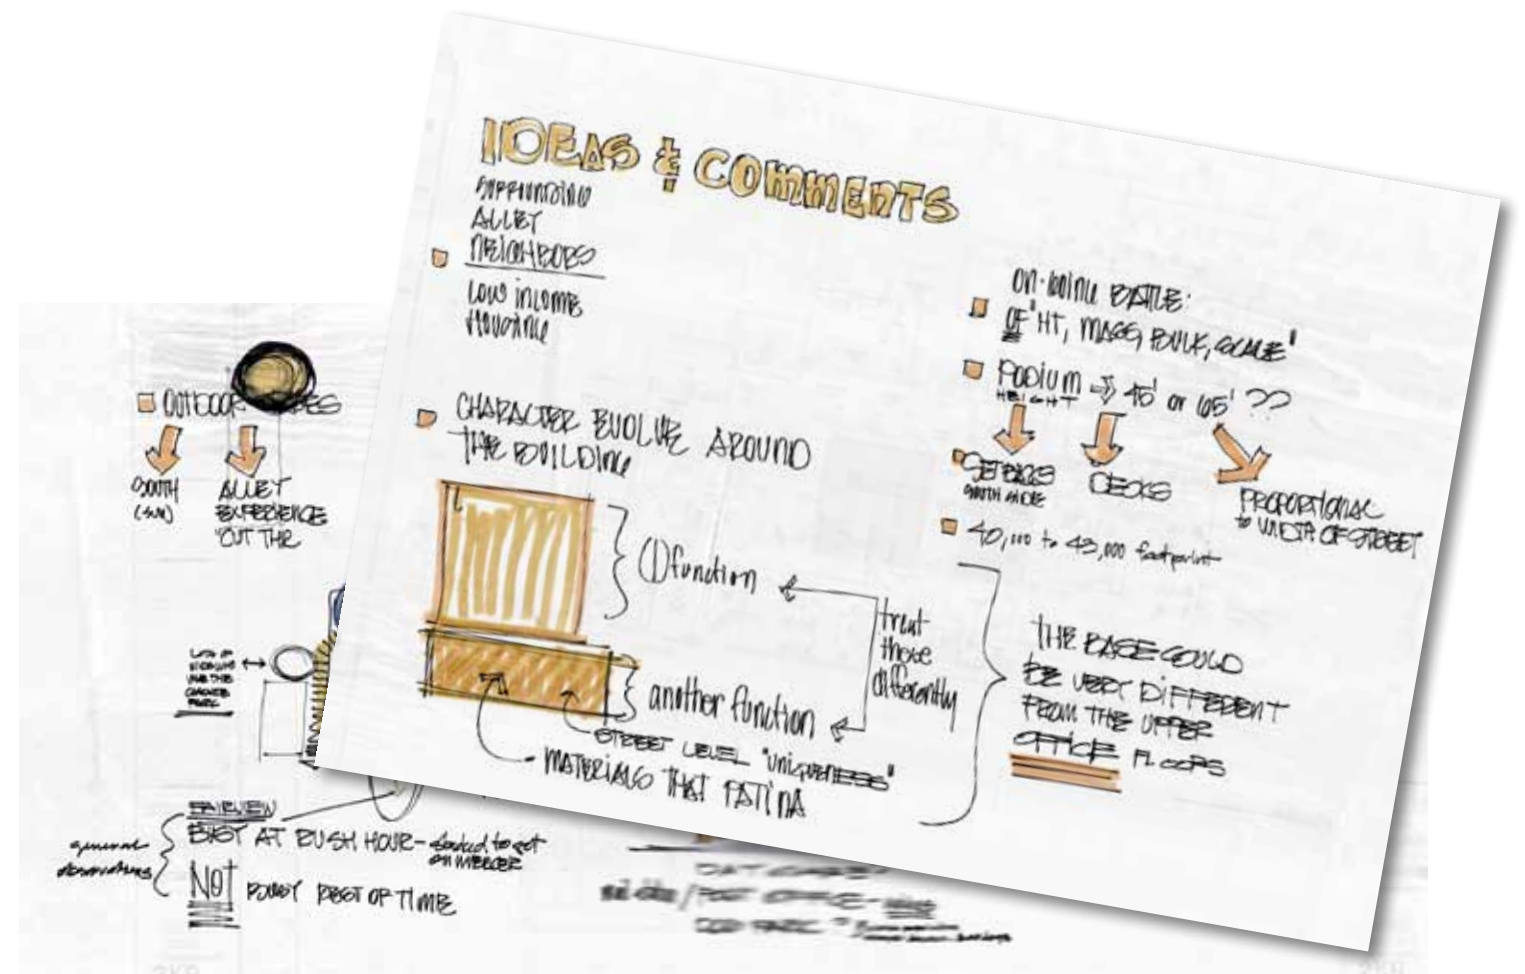 IDEAS & COMMENTS
SURROUNDING
ALLEY
NEIGHBORS
LOW INCOME
HOUSING
CHARACTER EVOLVE AROUND
THE BUILDING
(1) function
another function
treat
those
differently
STREET LEVEL "UNIQUENESS"
MATERIALS THAT PATINA
ON-GOING BATTLE:
OF "HT, MASS, BULK, SCALE"
PODIUM → 45' or 65' ??
HEIGHT
SETBACKS
SOUTH SIDE
DECKS
PROPORTIONAL
to WIDTH OF STREET
40,000 to 43,000 footprint
THE BASE COULD
BE VERY DIFFERENT
FROM THE UPPER
OFFICE FLOORS
OUTDOOR
SOUTH
(SUN)
ALLEY
EXPERIENCE
"CUT THR
LOTS OF
FAIRVIEW
BUSY AT RUSH HOUR - stacked to get
on MERCER
general
observations
NOT BUSY REST OF TIME
POST OFFICE